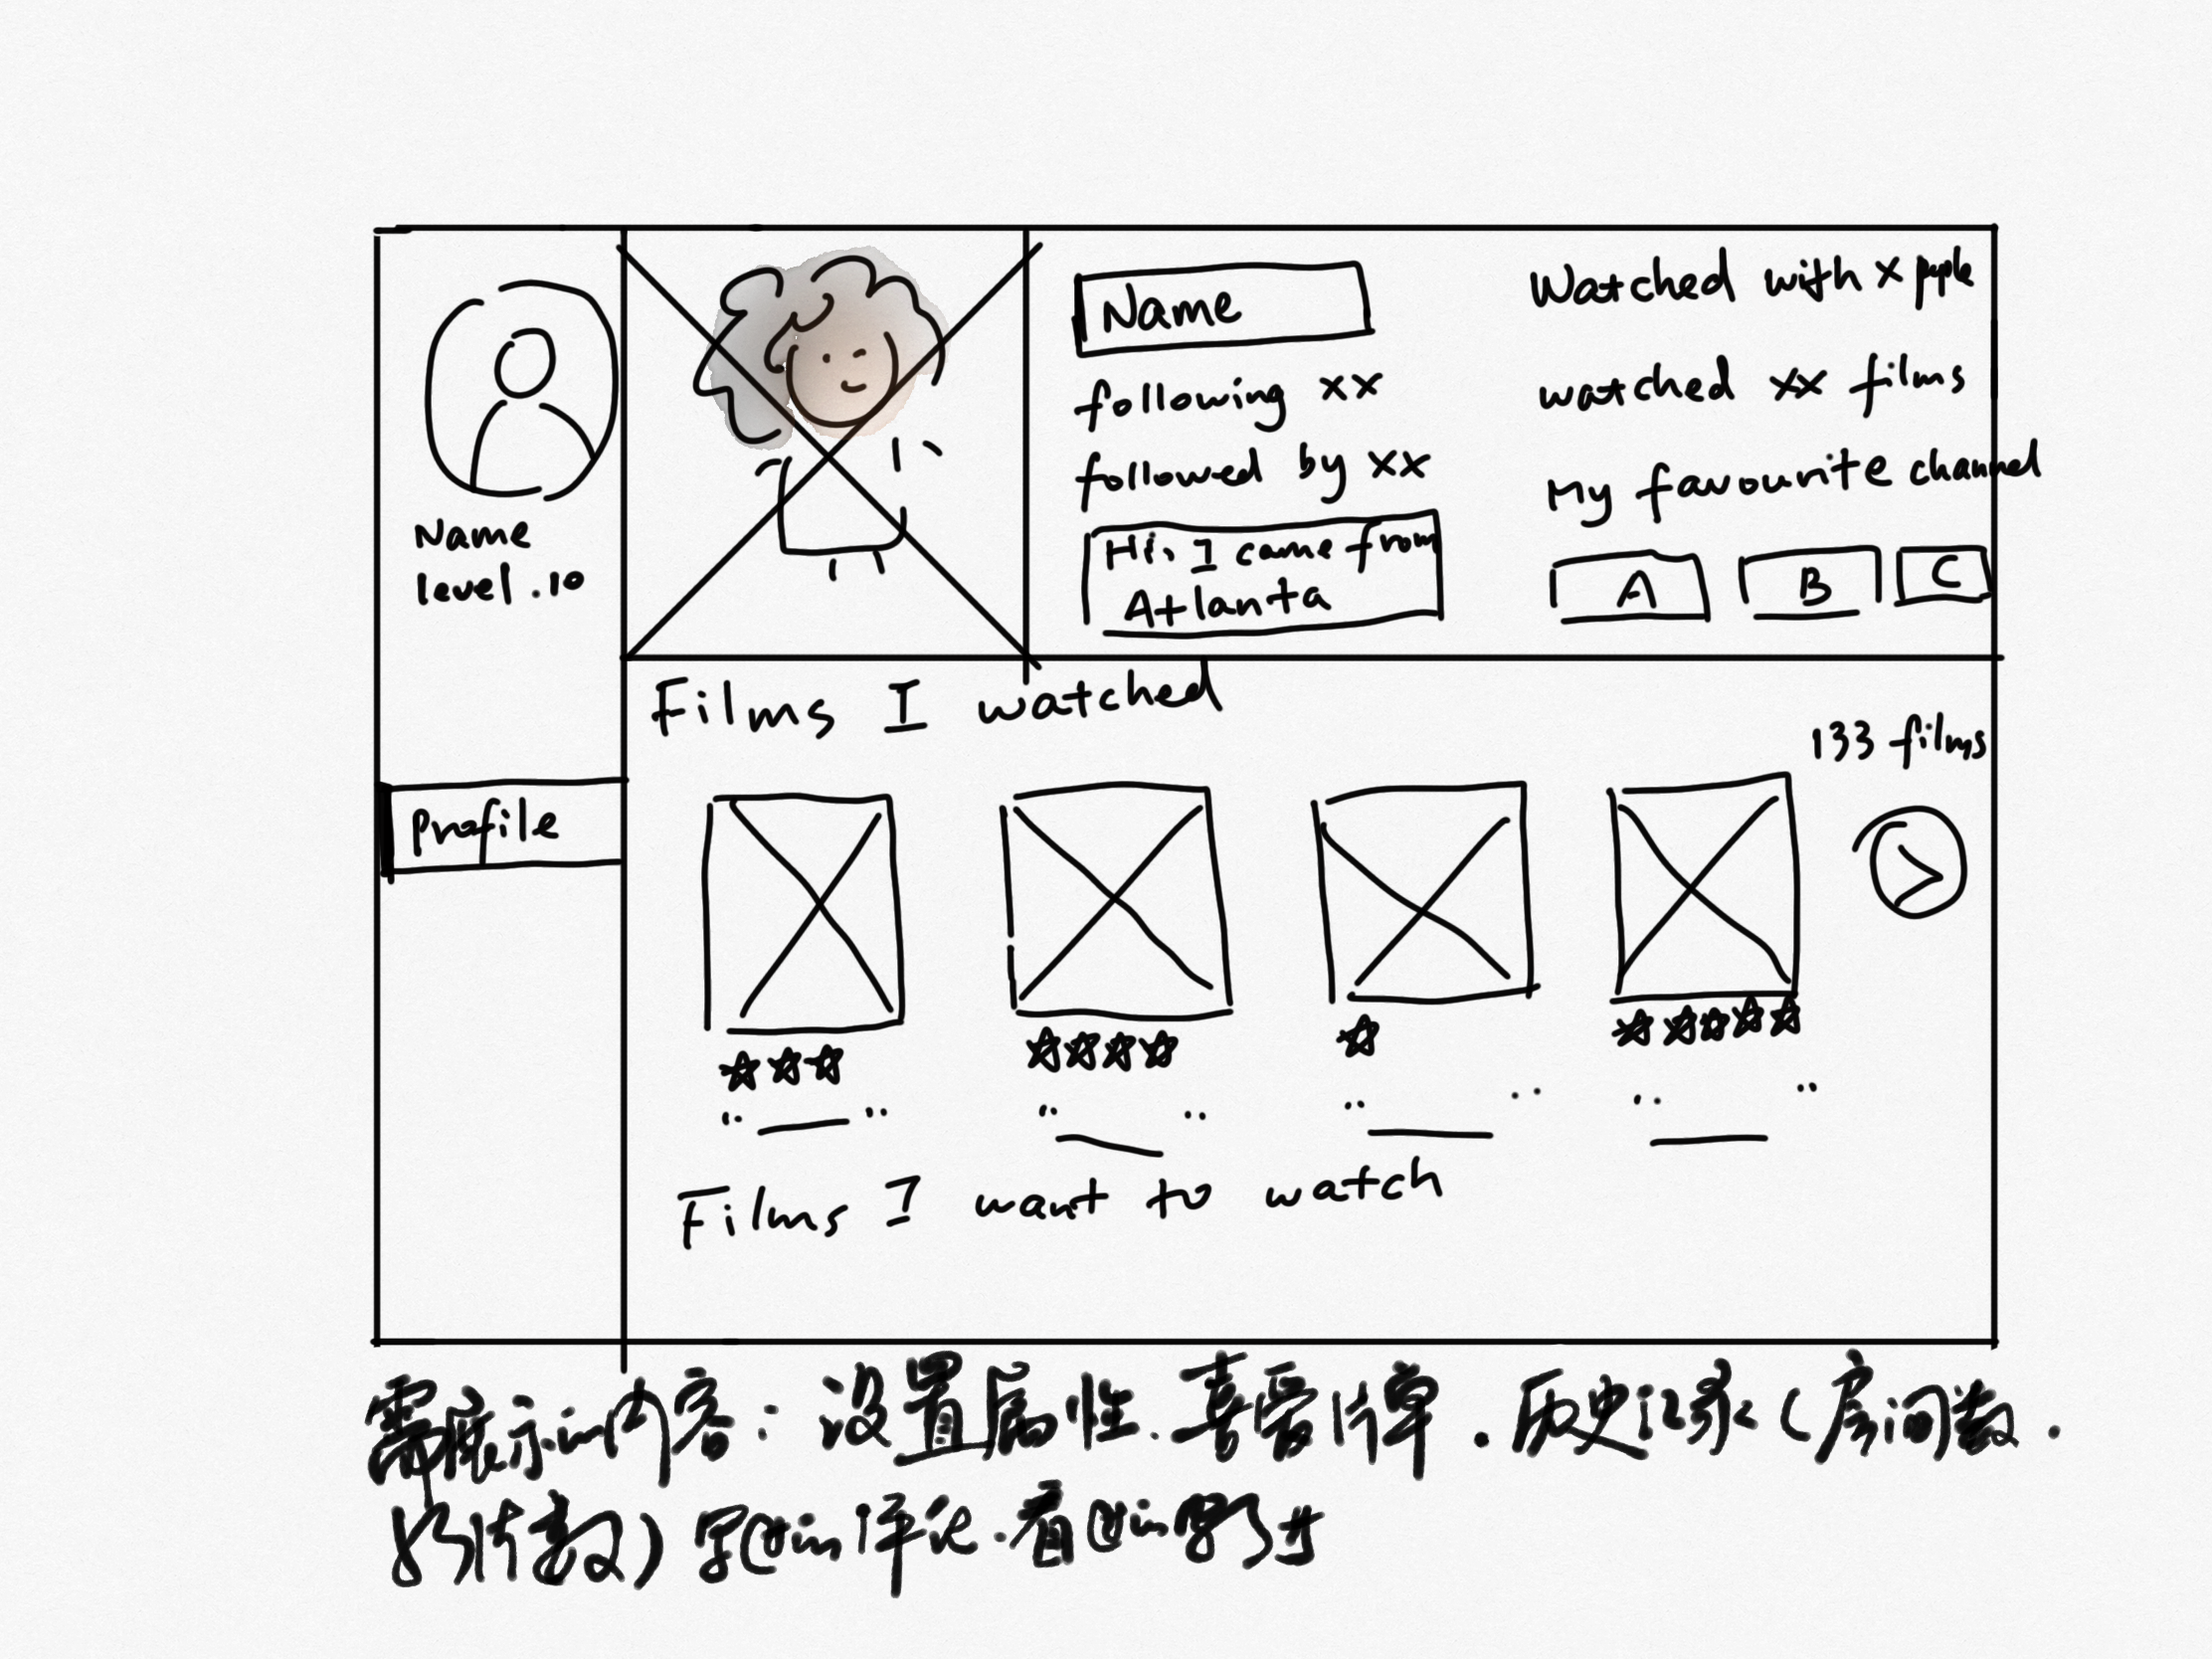 Name
level.10
Profile
Name
following xx
followed by xx
Hi, I came from
Atlanta
Watched with x people
watched xx films
My favourite channel
A B C
Films I watched
133 films
Films I want to watch
需展示的内容：设置属性、喜爱片单．历史记录（房间数．
好友数）写的评论．看的影片